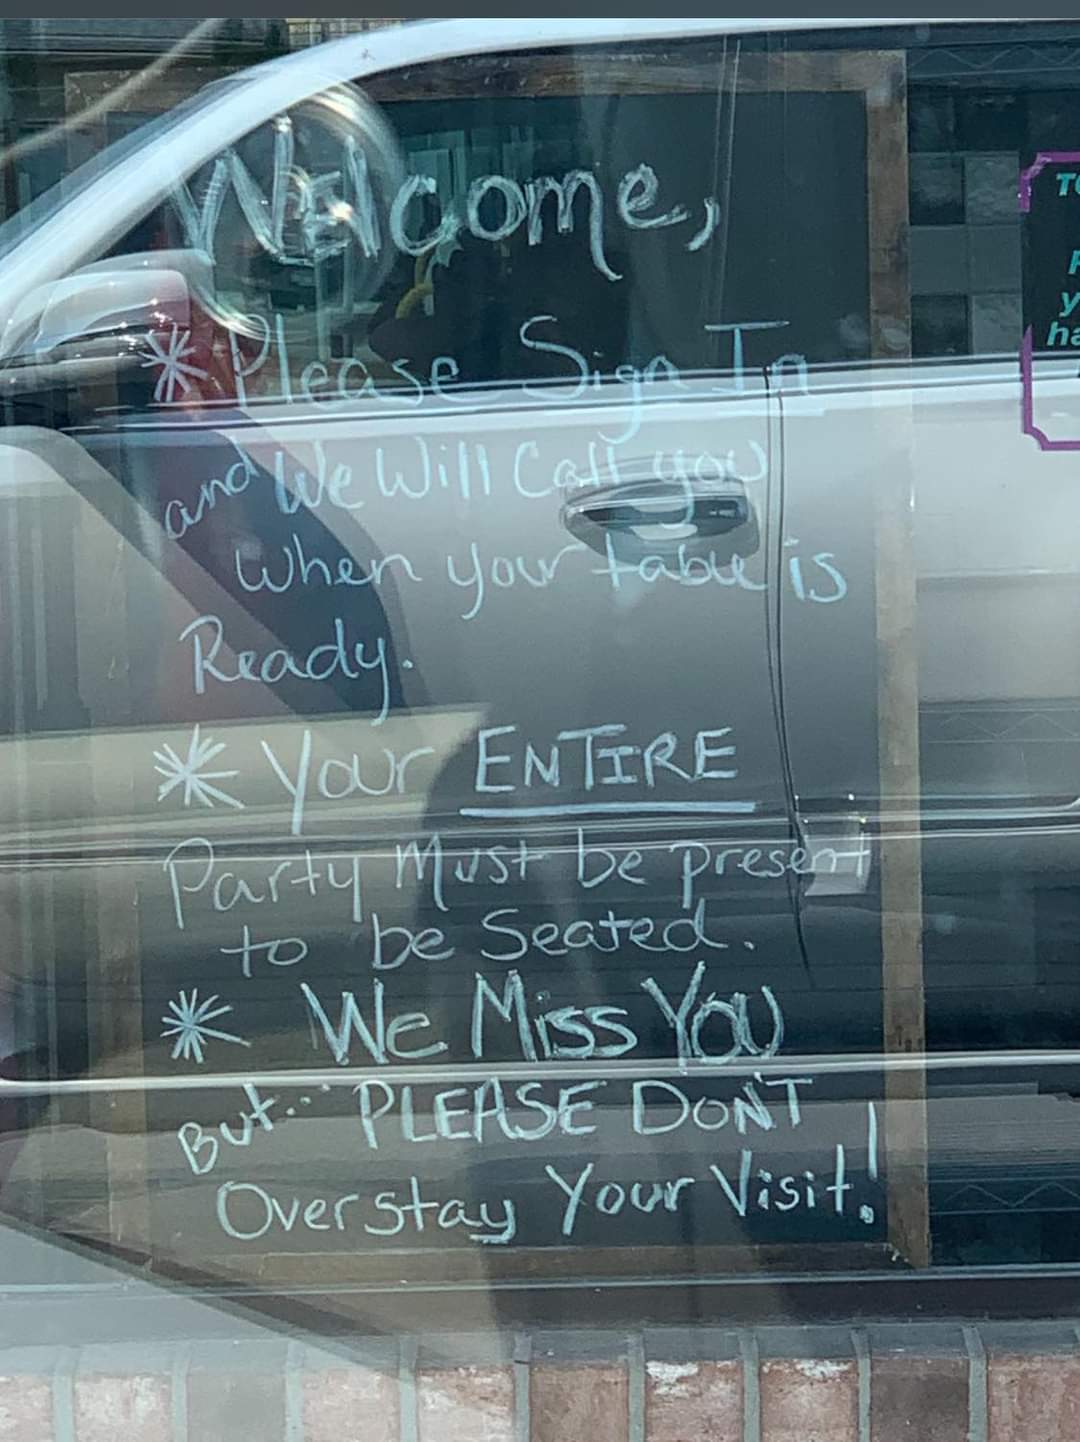 Welcome,
* Please Sign In
and We Will Call you
when your table is
Ready.
* Your ENTIRE
Party Must be present
to be Seated.
* We Miss You
But... PLEASE DON'T
Overstay Your Visit!